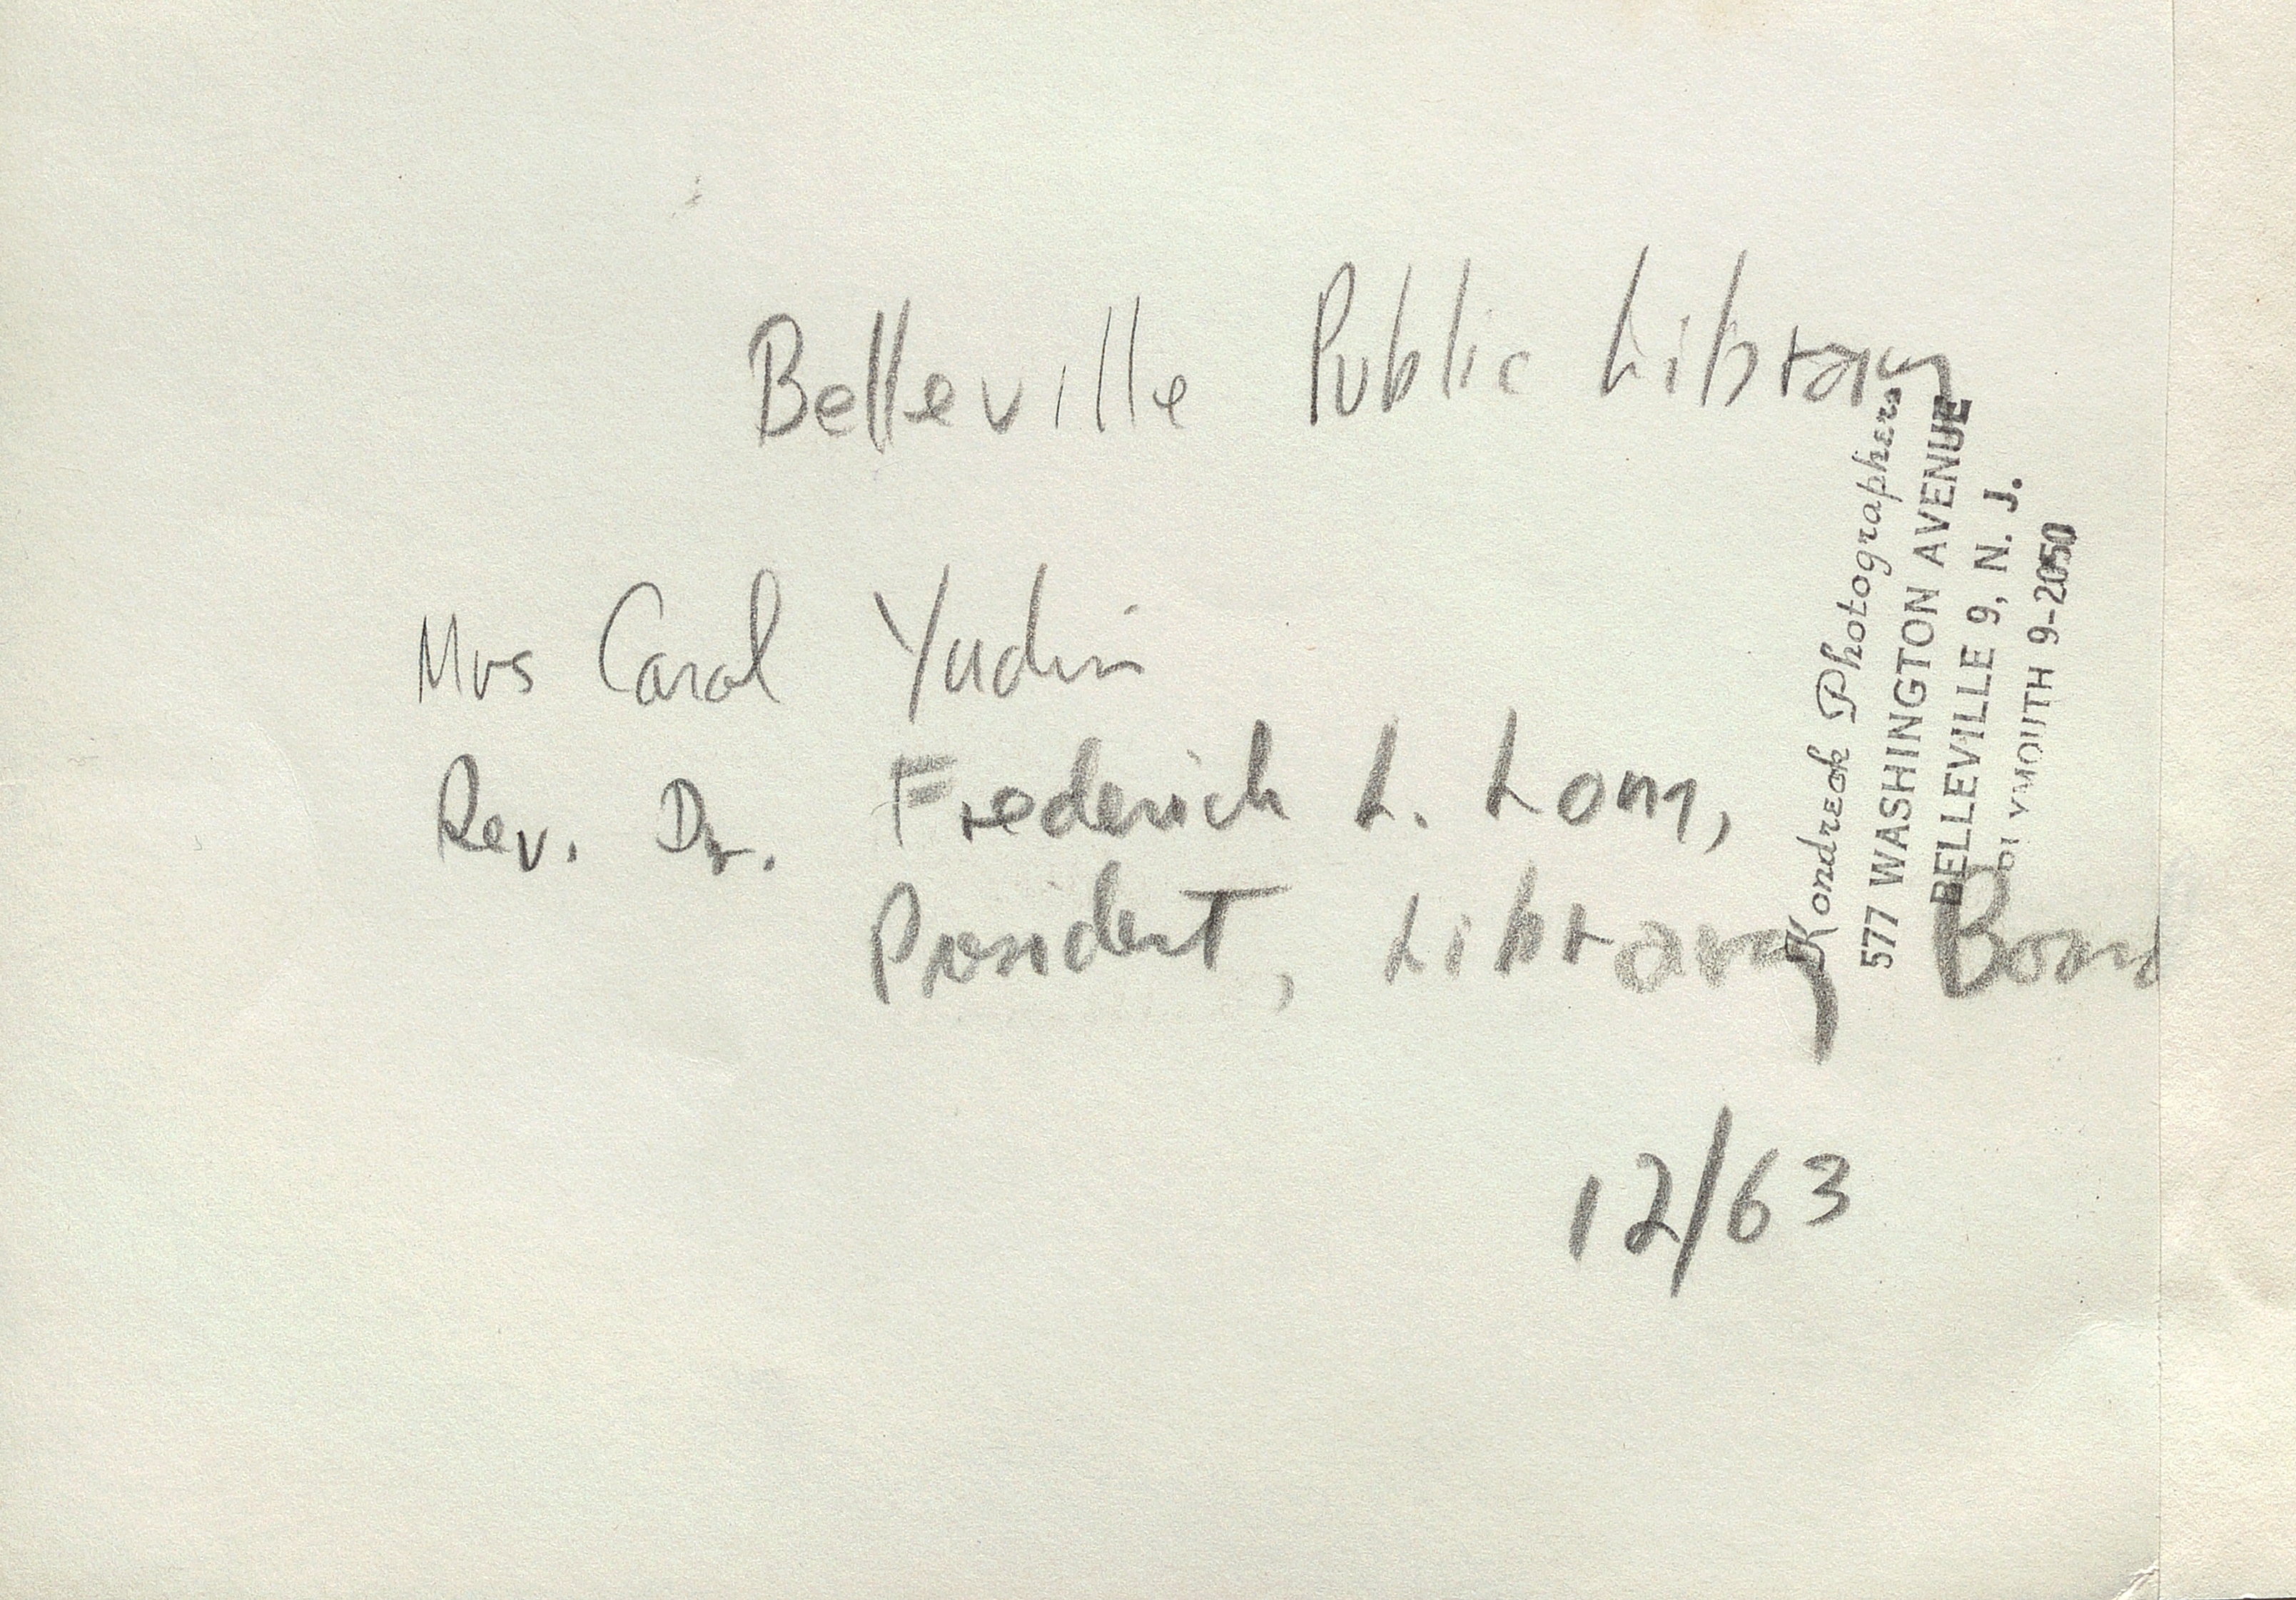 Belleville Public Library
Mrs Carol Yudin
Rev. Dr. Frederick L. Long,
President, Library Board
12/63
Kondreck Photographers
577 WASHINGTON AVENUE
BELLEVILLE 9, N. J.
PLYMOUTH 9-2050